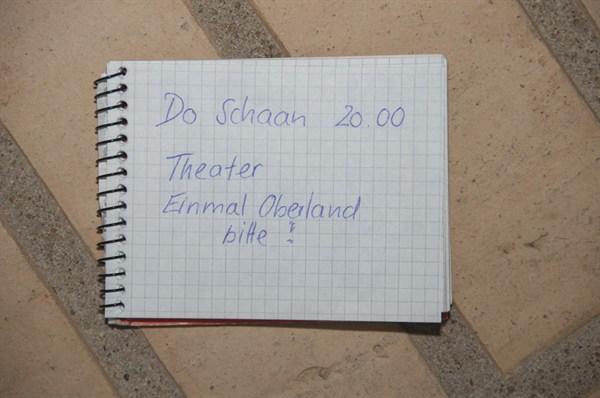 Do Schaan 20.00
Theater
Einmal Oberland
bitte!